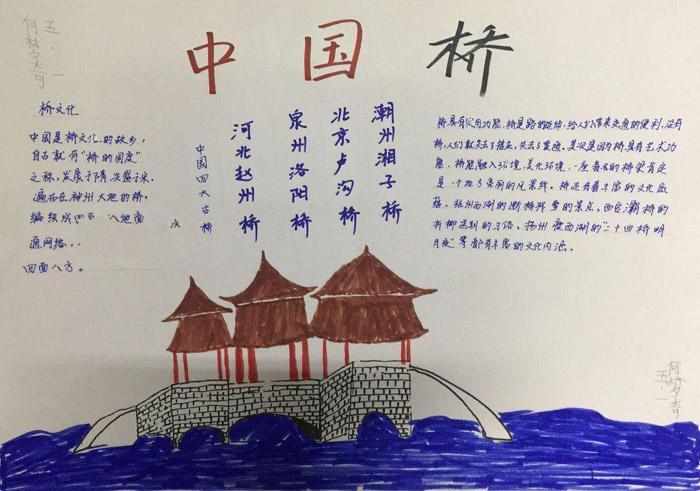 中国桥
五.一
桥文化
中国是桥文化的故乡,
自古就有“桥的国度”
之称,发展于隋,兴盛于宋.
遍布在神州大地的桥,
编织成四 八
通网络..
四面八方。
河北赵州桥
泉州洛阳桥
北京卢沟桥
潮州湘子桥
中国四大古桥
桥具有实用功能,桥是路的延伸,给人们带来交通的便利,没有
桥,人们就失去了捷径,失去了贯通。其次是因为桥具有艺术功
能,桥能融入环境,美化环境,一座著名的桥梁肯定
是一个地方亮丽的风景线。桥还有着丰富的文化底
蕴,杭州西湖的断桥残雪的景点、西安灞桥的
折柳送别的习俗、扬州瘦西湖的“二十四桥明
月夜”等都有丰富的文化内涵。
五.一